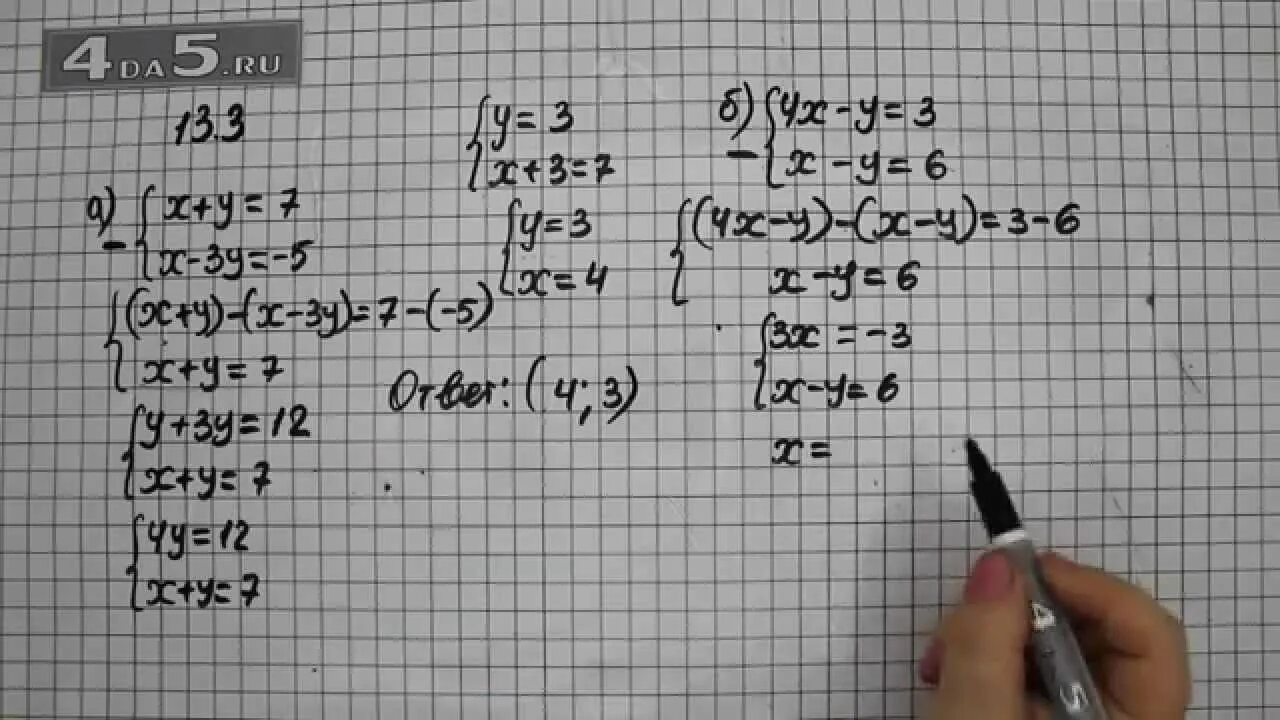 4DA5.RU
13.3
а) { x+y=7
- { x-3y=-5
{ (x+y)-(x-3y)=7-(-5)
{ x+y=7
{ y+3y=12
{ x+y=7
{ 4y=12
{ x+y=7
{ y=3
{ x+3=7
{ y=3
{ x=4
Ответ: (4;3)
б) { 4x-y=3
- { x-y=6
{ (4x-y)-(x-y)=3-6
{ x-y=6
{ 3x=-3
{ x-y=6
x=
4 5